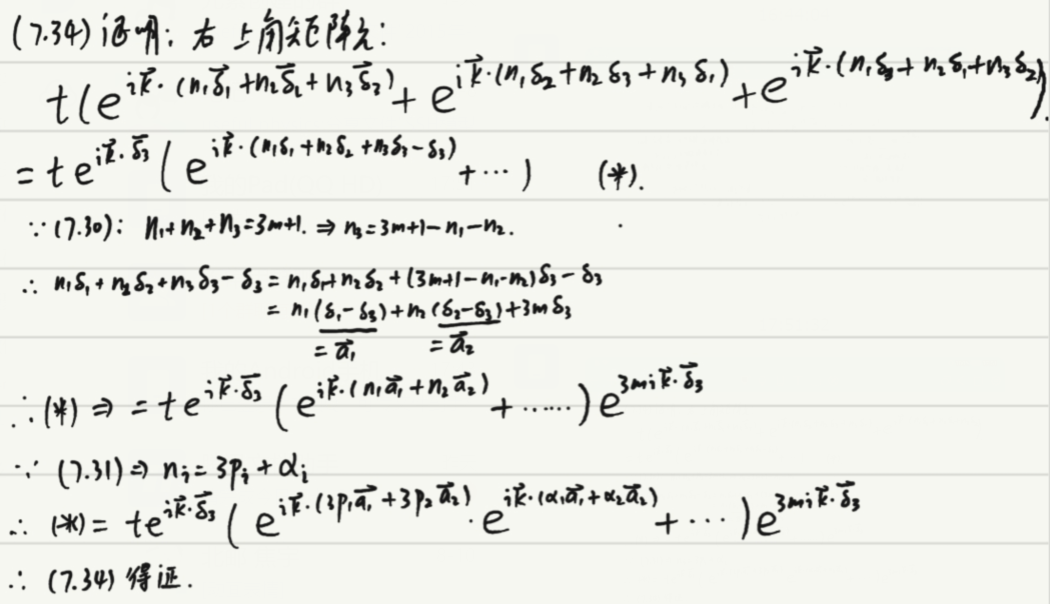 (7.34) 证明: 右上角矩阵元:
t(e^{i\vec{k}·(n₁\vec{δ}₁+n₂\vec{δ}₂+n₃\vec{δ}₃)} + e^{i\vec{k}·(n₁δ₂+n₂δ₃+n₃δ₁)} + e^{i\vec{k}·(n₁δ₃+n₂δ₁+n₃δ₂)}).
= t e^{i\vec{k}·\vec{δ}₃} ( e^{i\vec{k}·(n₁δ₁+n₂δ₂+n₃δ₃-δ₃)} + ··· ) (*).
∵ (7.30): n₁+n₂+n₃=3m+1. ⇒ n₃=3m+1-n₁-n₂.
∴ n₁δ₁+n₂δ₂+n₃δ₃-δ₃ = n₁δ₁+n₂δ₂+(3m+1-n₁-n₂)δ₃-δ₃
= n₁(δ₁-δ₃)+n₂(δ₂-δ₃)+3mδ₃
= \vec{a}₁ = \vec{a}₂
∴ (*) ⇒ = t e^{i\vec{k}·\vec{δ}₃} ( e^{i\vec{k}·(n₁\vec{a}₁+n₂\vec{a}₂)} + ······ ) e^{3mi\vec{k}·\vec{δ}₃}
∵ (7.31) ⇒ nᵢ=3pᵢ+αᵢ
∴ (*) = te^{i\vec{k}·\vec{δ}₃} ( e^{i\vec{k}·(3p₁\vec{a}₁+3p₂\vec{a}₂)} · e^{i\vec{k}·(α₁\vec{a}₁+α₂\vec{a}₂)} + ··· ) e^{3mi\vec{k}·\vec{δ}₃}
∴ (7.34) 得证.